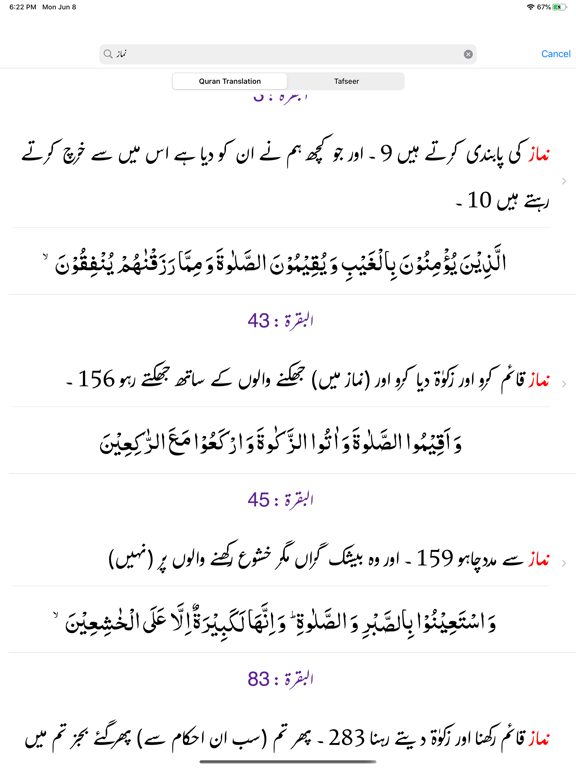 6:22 PM Mon Jun 8 67%
نماز
Cancel
Quran Translation Tafseer
البقرة : 3
نماز کی پابندی کرتے ہیں 9 ۔ اور جو کچھ ہم نے ان کو دیا ہے اس میں سے خرچ کرتے
رہتے ہیں 10 ۔
الَّذِيْنَ يُؤْمِنُوْنَ بِالْغَيْبِ وَ يُقِيْمُوْنَ الصَّلٰوةَ وَ مِمَّا رَزَقْنٰهُمْ يُنْفِقُوْنَ ۙ
البقرة : 43
نماز قائم کرو اور زکوٰۃ دیا کرو اور (نماز میں) جھکنے والوں کے ساتھ جھکتے رہو 156 ۔
وَ اَقِيْمُوا الصَّلٰوةَ وَ اٰتُوا الزَّكٰوةَ وَ ارْكَعُوْا مَعَ الرّٰكِعِيْنَ
البقرة : 45
نماز سے مدد چاہو 159 ۔ اور وہ بیشک گراں مگر خشوع رکھنے والوں پر (نہیں)
وَ اسْتَعِيْنُوْا بِالصَّبْرِ وَ الصَّلٰوةِ ؕ وَ اِنَّهَا لَكَبِيْرَةٌ اِلَّا عَلَى الْخٰشِعِيْنَ ۙ
البقرة : 83
نماز قائم رکھنا اور زکوٰۃ دیتے رہنا 283 ۔ پھر تم (سب ان احکام سے) پھر گئے بجز تم میں